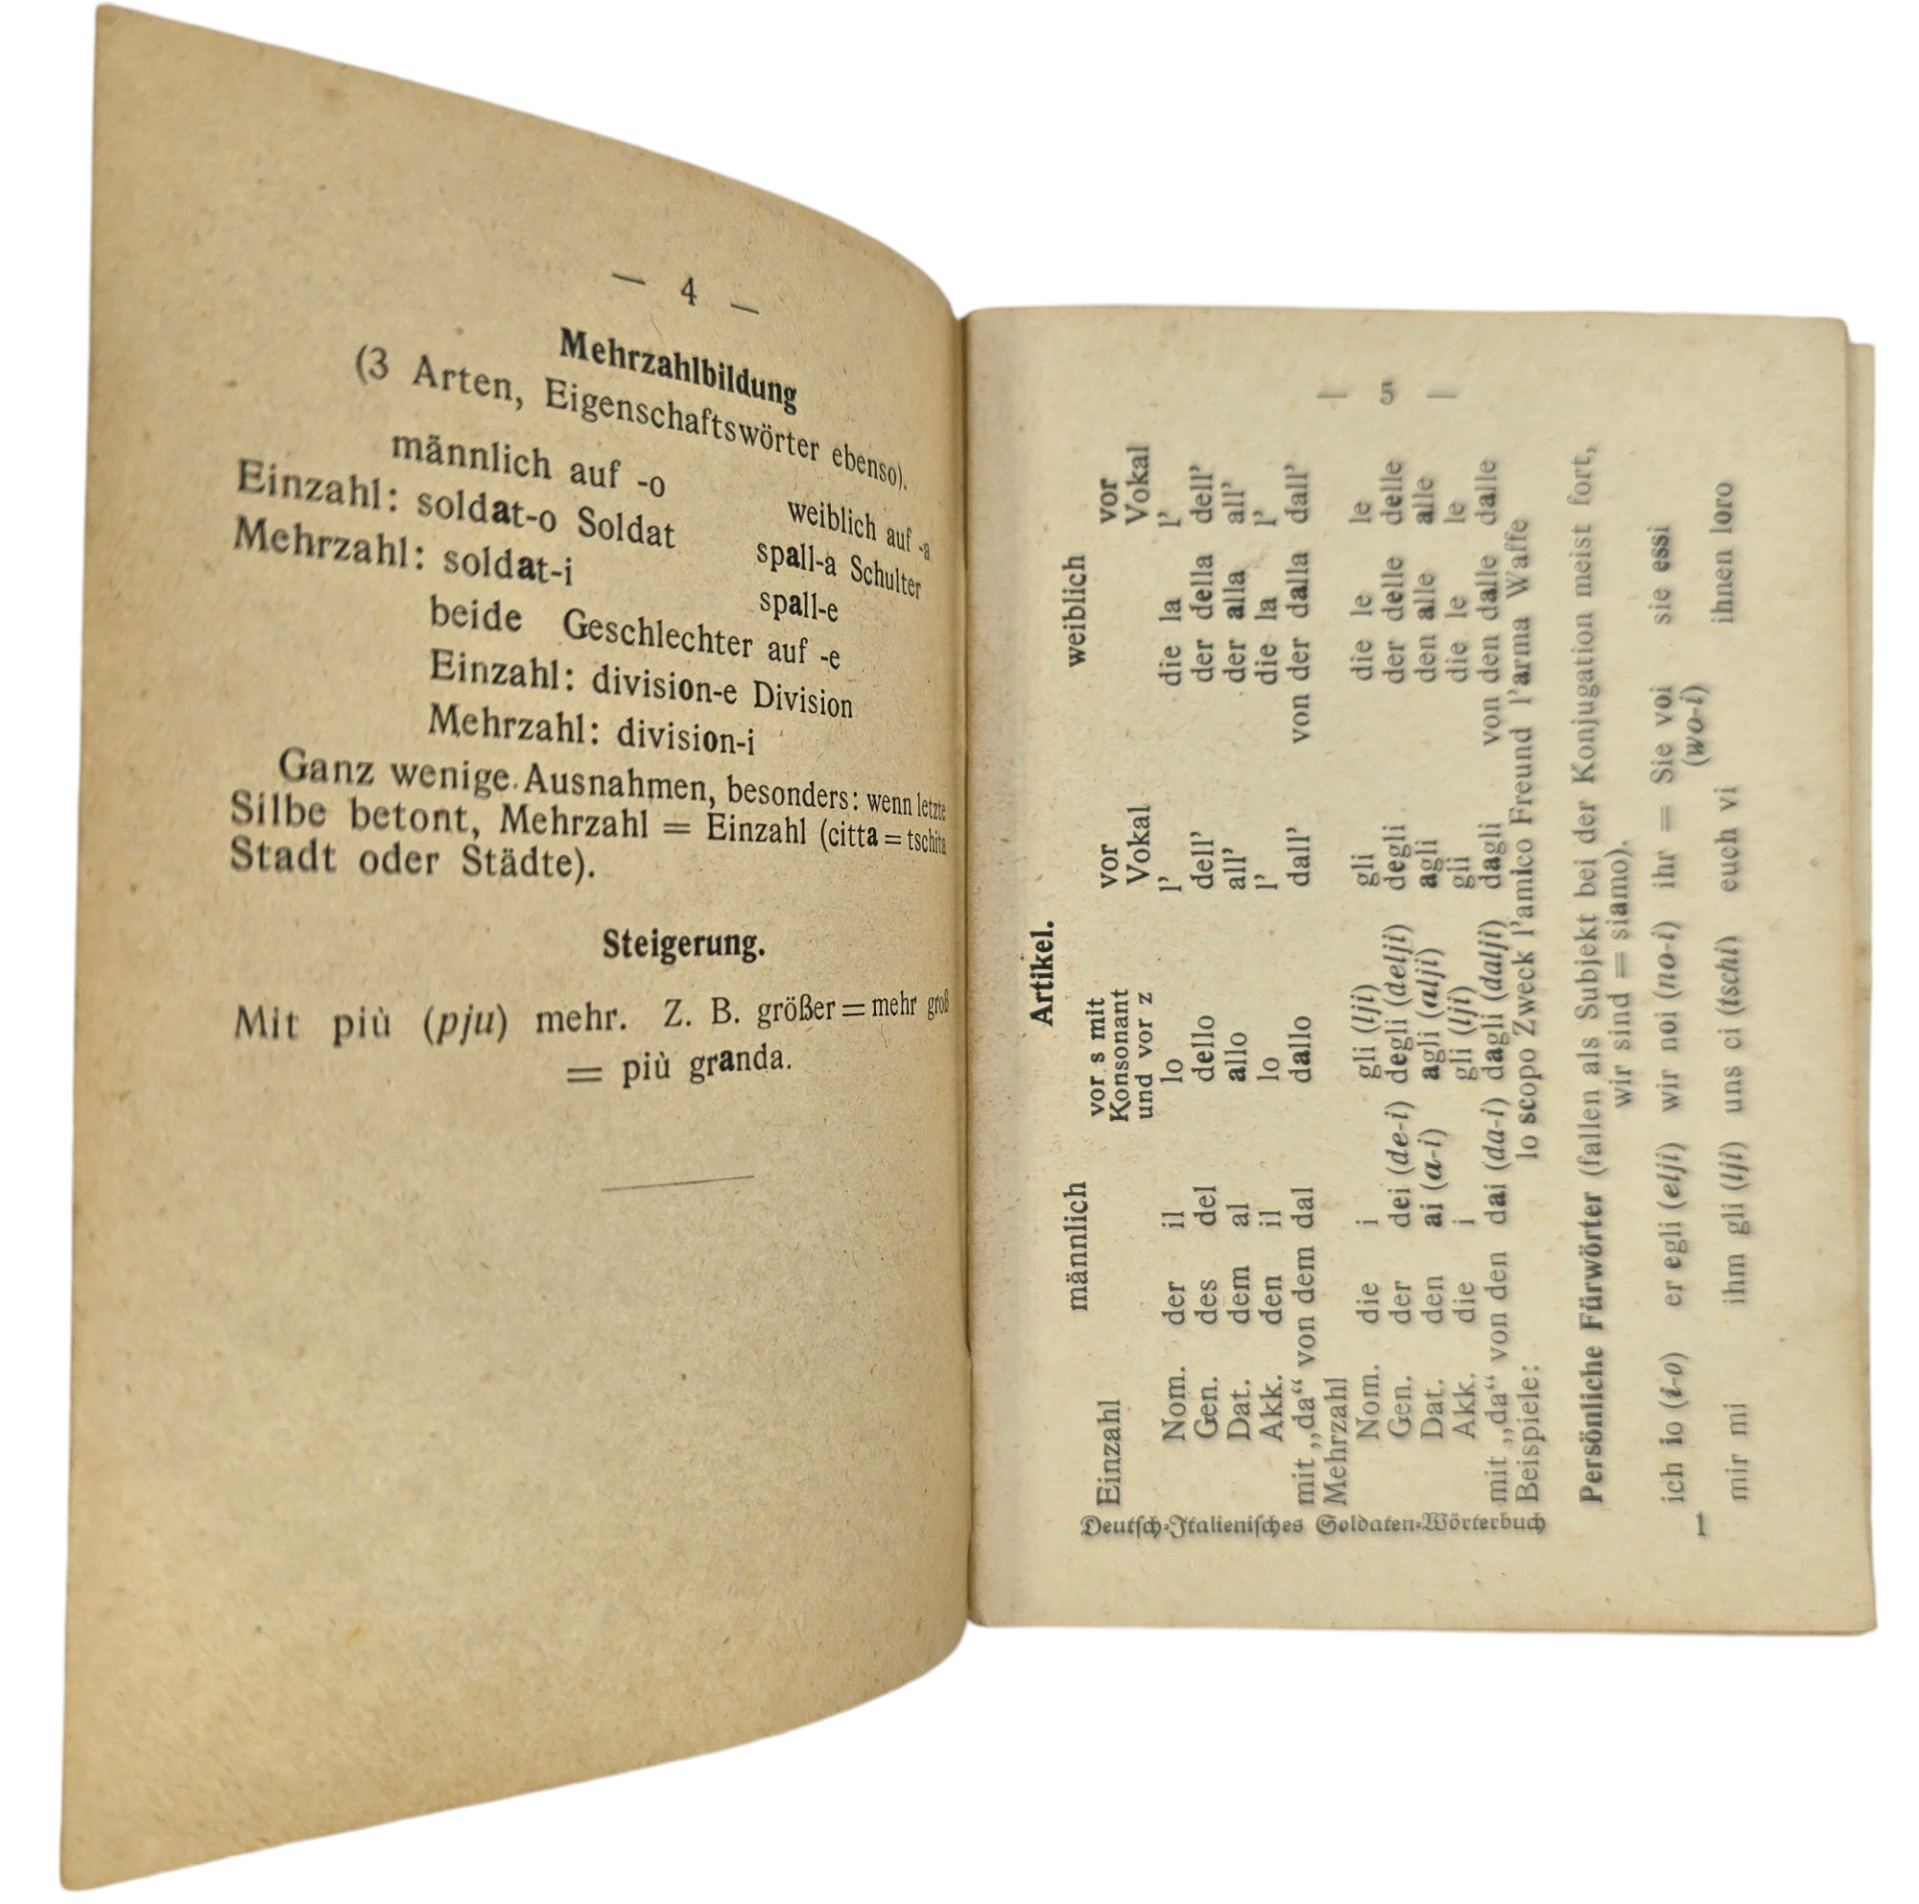 — 4 —
Mehrzahlbildung
(3 Arten, Eigenschaftswörter ebenso).
männlich auf -o weiblich auf -a
Einzahl: soldat-o Soldat spall-a Schulter
Mehrzahl: soldat-i spall-e
beide Geschlechter auf -e
Einzahl: division-e Division
Mehrzahl: division-i
Ganz wenige Ausnahmen, besonders: wenn letzte
Silbe betont, Mehrzahl = Einzahl (citta = tschita
Stadt oder Städte).
Steigerung.
Mit più (pju) mehr. Z. B. größer = mehr groß
= più granda.
— 5 —
Artikel.
männlich weiblich
Einzahl vor s mit Konsonant und vor z vor Vokal vor Vokal
Nom. der il lo l' die la l'
Gen. des del dello dell' der della dell'
Dat. dem al allo all' der alla all'
Akk. den il lo l' die la l'
mit „da“ von dem dal dallo dall' von der dalla dall'
Mehrzahl
Nom. die i gli (lji) gli die le le
Gen. der dei (de-i) degli (delji) degli der delle delle
Dat. den ai (a-i) agli (alji) agli den alle alle
Akk. die i gli (lji) gli die le le
mit „da“ von den dai (da-i) dagli (dalji) dagli von den dalle dalle
Beispiele: lo scopo Zweck l'amico Freund l'arma Waffe
Persönliche Fürwörter (fallen als Subjekt bei der Konjugation meist fort,
wir sind = siamo).
ich io (i-o) er egli (elji) wir noi (no-i) ihr = Sie voi sie essi
(wo-i)
mir mi ihm gli (lji) uns ci (tschi) euch vi ihnen loro
Deutsch-Italienisches Soldaten-Wörterbuch 1